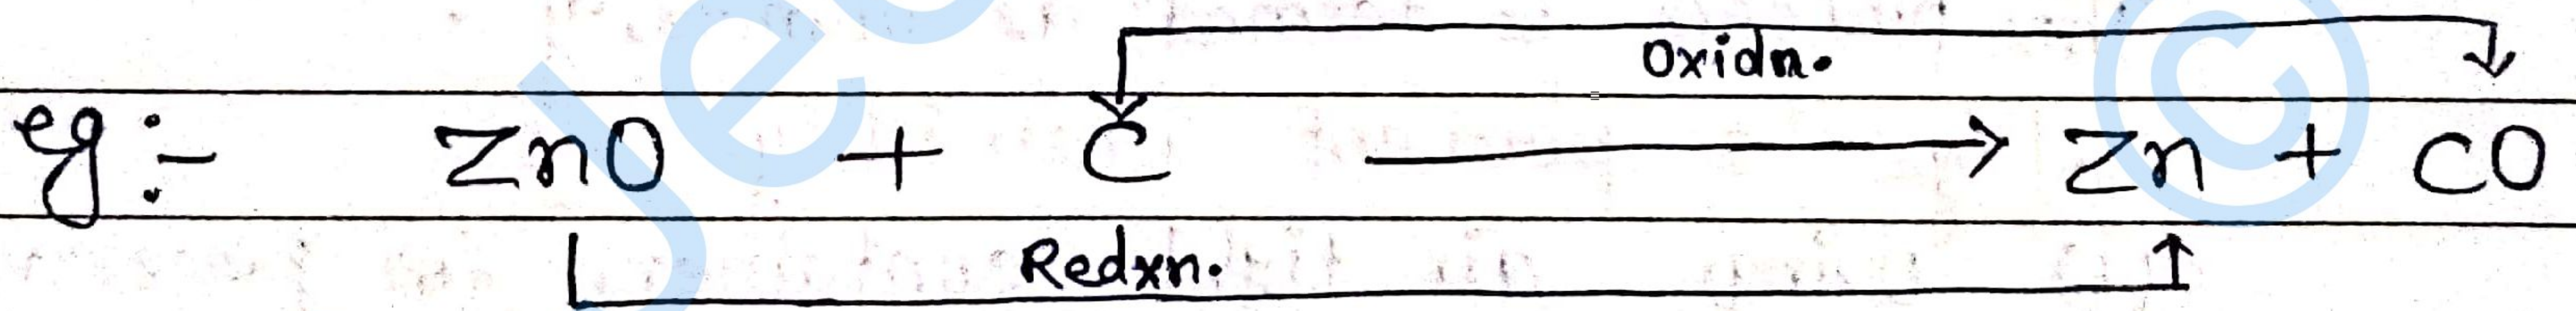 Oxidn.
eg:- ZnO + C ⟶ Zn + CO
Redxn.